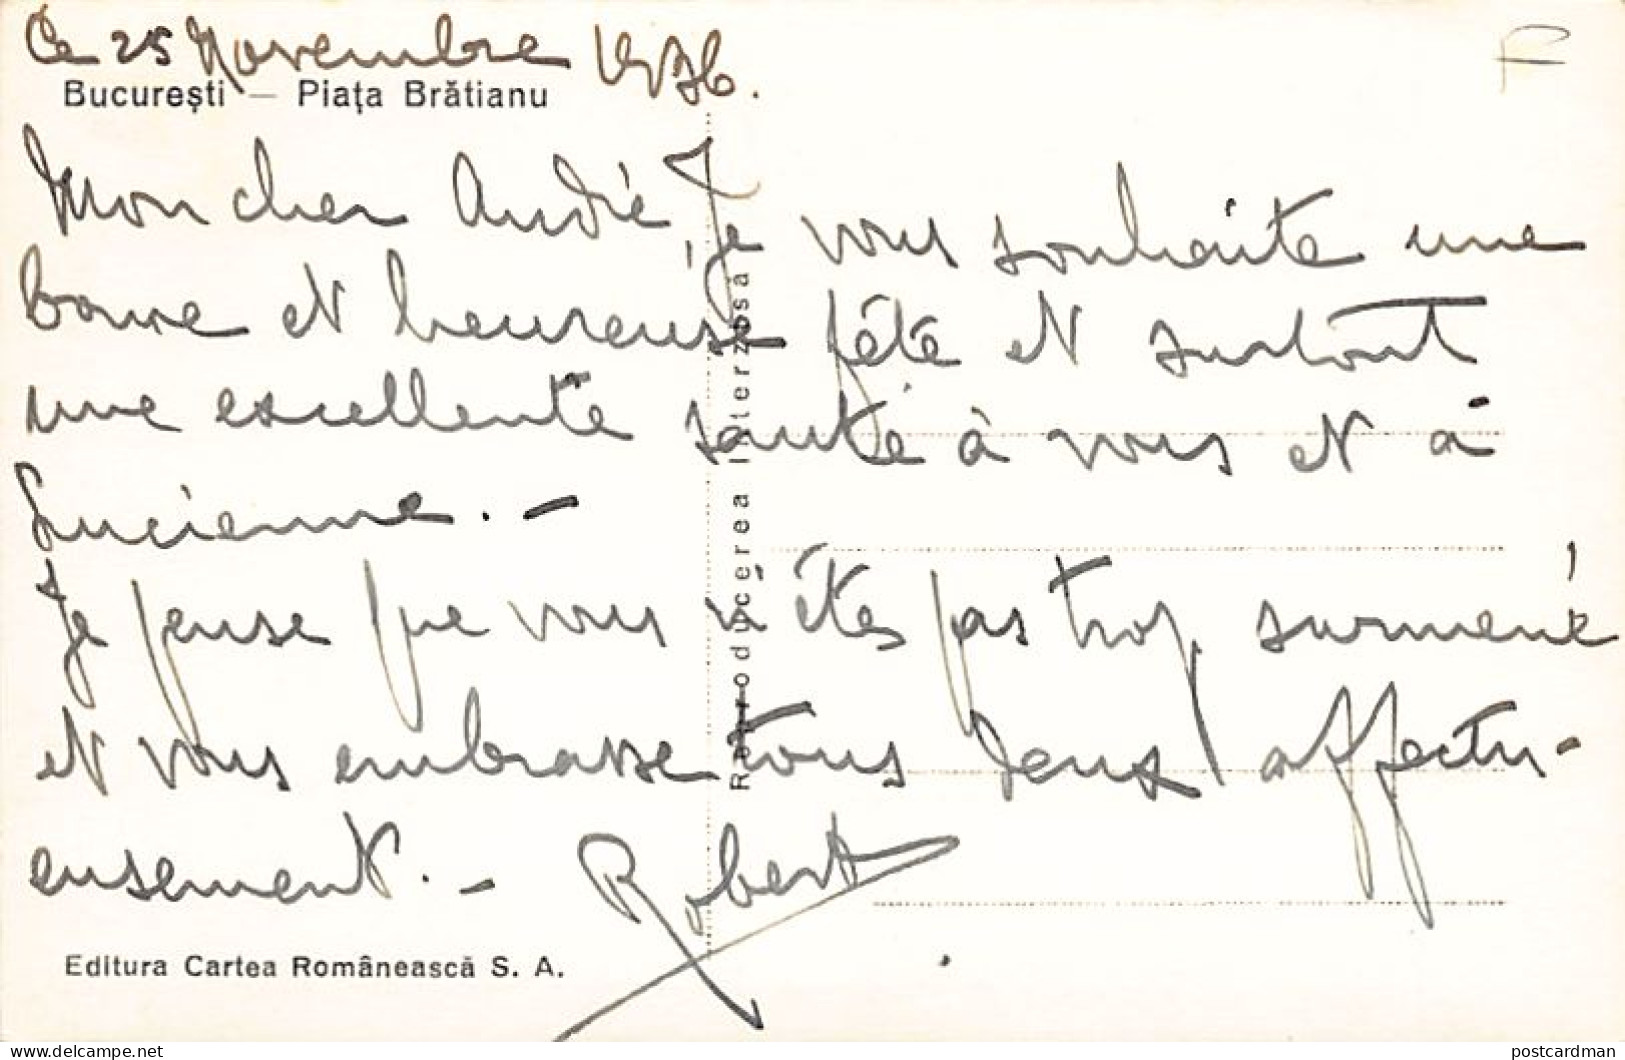 Ce 25 Novembre 1936.
F
București — Piața Brătianu
Mon cher André, Je vous souhaite une
bonne et heureuse fête et surtout
une excellente santé à vous et à
Lucienne. -
Je pense que vous n'êtes pas trop surmené
et vous embrasse tous deux affectu-
eusement. - Robert
Reproducerea interzesă
Editura Cartea Românească S. A.
delcampe.net
postcardman